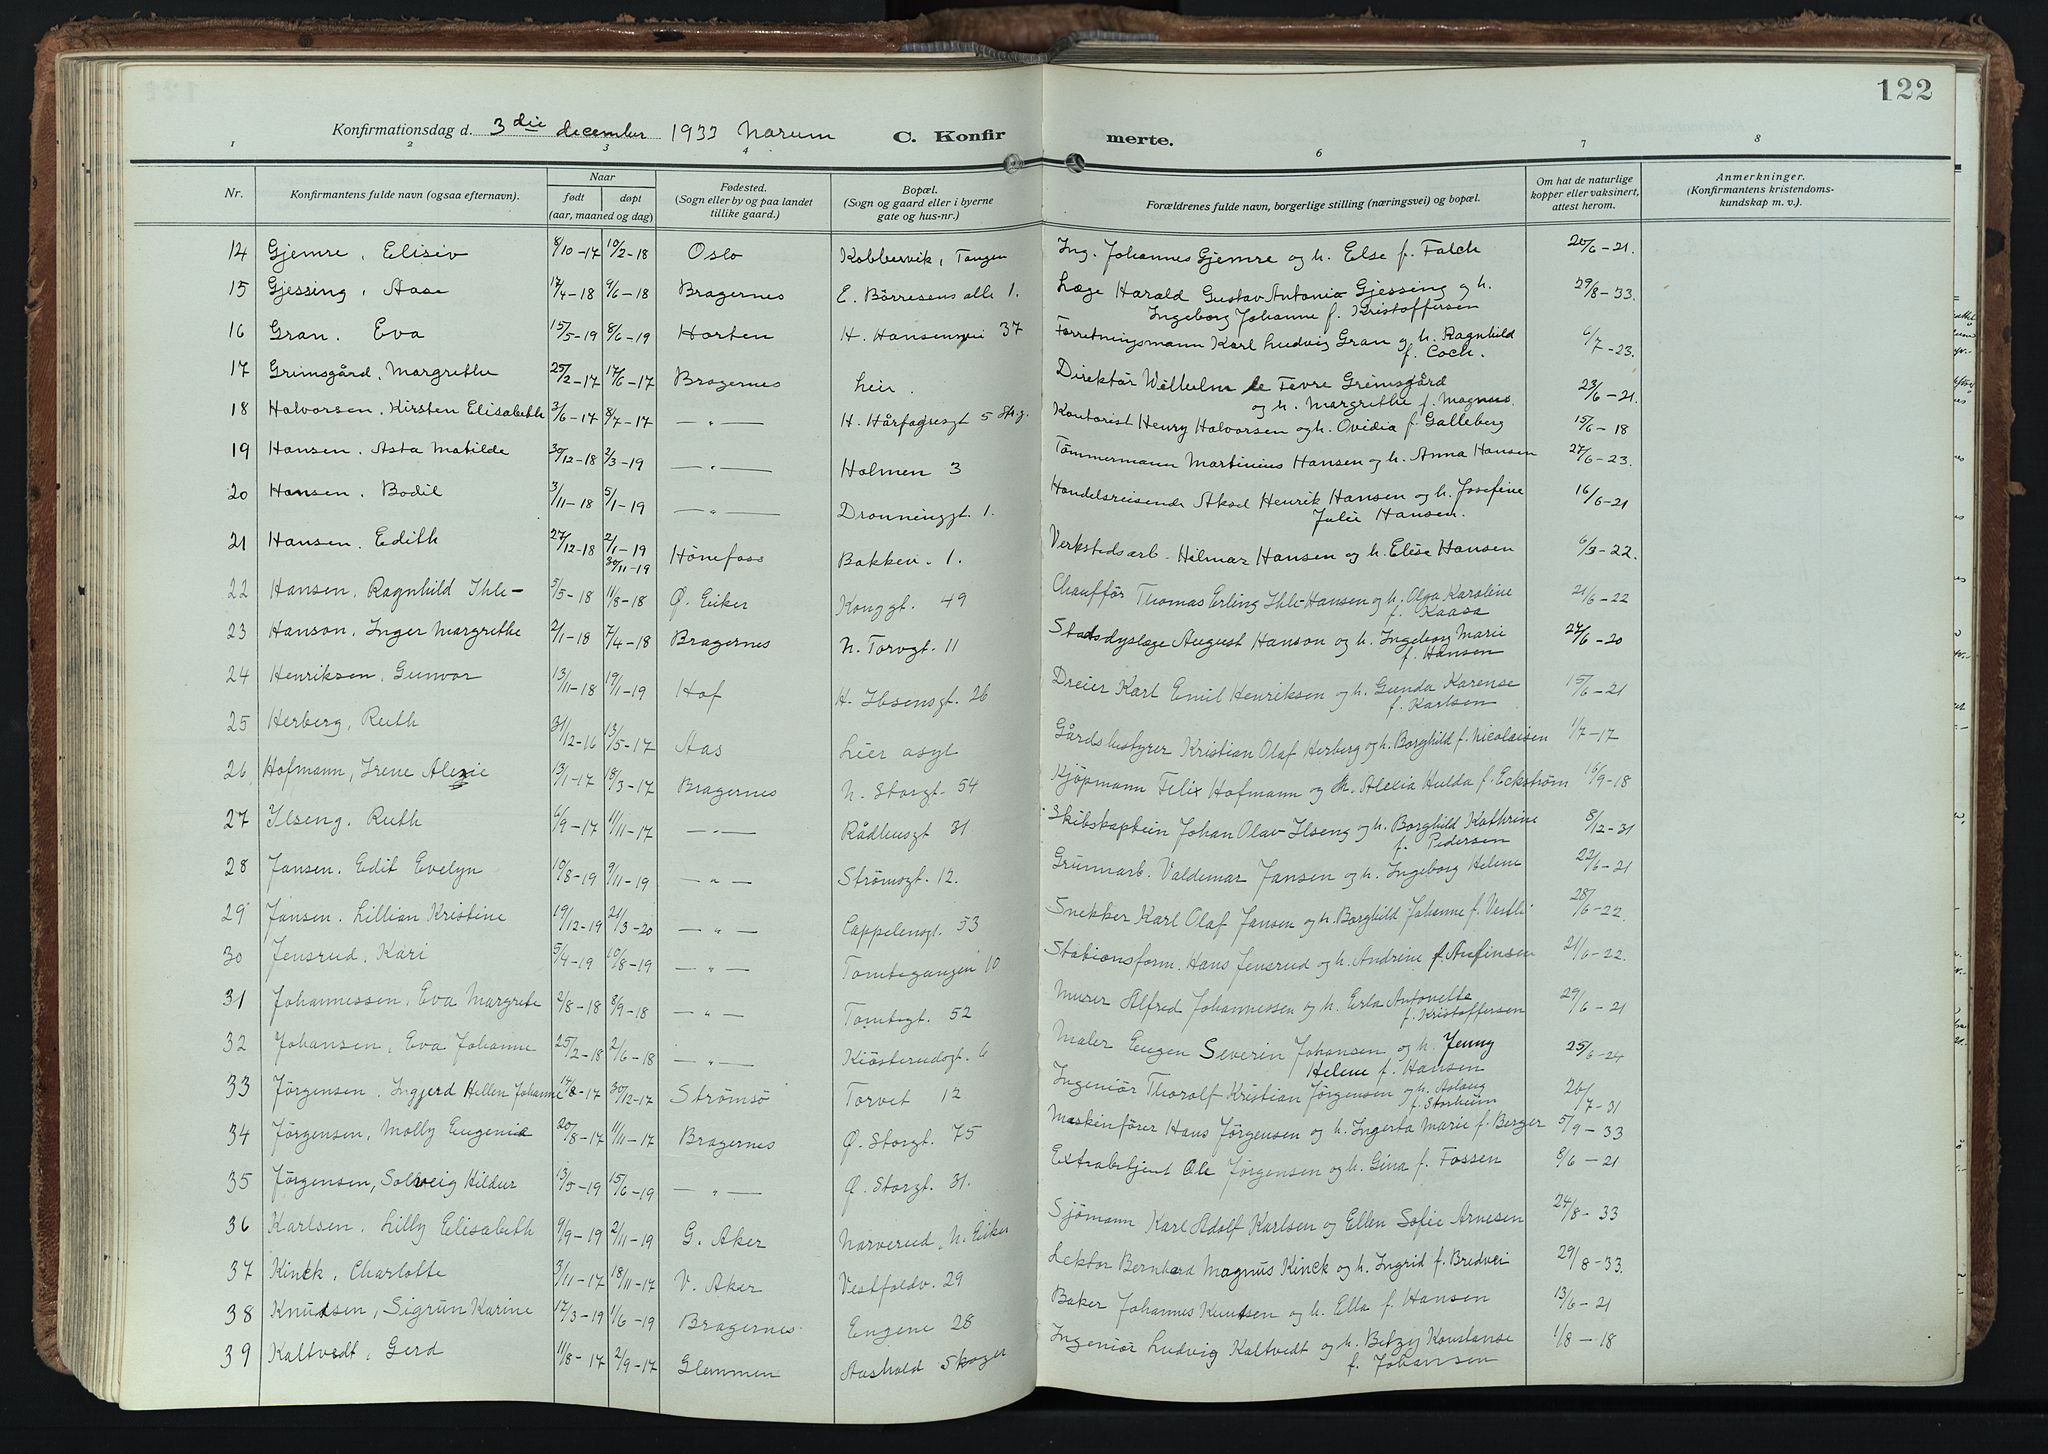 122
Konfirmationsdag d. 3die december 1933 Narum C. Konfirmerte.
1 2 3 4 5 6 7 8
Nr. Konfirmantens fulde navn (ogsaa efternavn). Naar født døpt (aar, maaned og dag) Fødested. (Sogn eller by og paa landet tillike gaard.) Bopæl. (Sogn og gaard eller i byerne gate og hus-nr.) Forældrenes fulde navn, borgerlige stilling (næringsvei) og bopæl. Om hat de naturlige kopper eller vaksinert, attest herom. Anmerkninger. (Konfirmantens kristendomskundskap m. v.).
14 Gjemre, Elisiv 8/10-17 10/2-18 Oslo Kobbervik, Tangen Ing. Johannes Gjemre og h. Else f. Falch 20/6-21.
15 Gjessing, Aase 17/4-18 9/6-18 Bragernes E. Börresens alle 1. Læge Harald Gustav Antonio Gjessing og h. 29/8-33.
Ingeborg Johanne f. Kristoffersen
16 Gran, Eva 15/5-19 8/6-19 Horten H. Hansensvei 37 Forretningsmann Karl Ludvig Gran og h. Ragnhild 6/7-23.
f. Coch.
17 Grimsgård, Margrethe 25/2-17 17/6-17 Bragernes Lier. Direktör Wilhelm le Fevre Grimsgård 23/6-21.
og h. Margrethe f. Magnus.
18 Halvorsen, Kirsten Elisabeth 3/6-17 8/7-17 —„— H. Hårfagresgt 5 Kontorist Henry Halvorsen og h. Ovidia f. Galleberg 15/6-18
19 Hansen, Asta Matilde 30/12-18 2/3-19 —„— Holmen 3 Tömmermann Martinius Hansen og h. Anna Hansen 27/6-23.
20 Hansen, Bodil 3/11-18 5/1-19 —„— Dronninggt. 1. Handelsreisende Henrik Hansen og h. Josefine 16/6-21
Julie Hansen.
21 Hansen, Edith 27/12-18 2/1-19 Hönefoss Bakken. 1. Verkstedsarb. Hilmar Hansen og h. Elise Hansen 6/3-22.
30/11-19
22 Hansen, Ragnhild Ihle- 5/5-18 11/8-18 Ø. Eiker Konggt. 49 Chauffør Thomas Erling Ihle-Hansen og h. Olga Karoline 21/6-22
f. Kaasa
23 Hanson, Inger Margrethe 2/1-18 7/4-18 Bragernes N. Torvgt. 11 Stadsdyrlæge August Hanson og h. Ingeborg Marie 24/6-20
f. Hansen
24 Henriksen, Gunvor 13/11-18 19/1-19 Hof H. Ibsensgt. 26 Dreier Karl Emil Henriksen og h. Gunda Karense 15/6-21
f. Karlsen
25 Herberg, Ruth 31/12-16 13/5-17 Aas Lier asyl Gårdsbestyrer Kristian Olaf Herberg og h. Borghild f. Nicolaisen 1/7-17
26 Hofmann, Irene Alexie 13/1-17 18/3-17 Bragernes N. Storgt. 54 Kjöpmann Felix Hofmann og h. Alexia Hulda f. Eckström 16/9-18
27 Ilseng, Ruth 6/9-17 11/11-17 —„— Rådhusgt 31 Skibskaptein Johan Olav Ilseng og h. Borghild Kathrine 8/12-31
f. Pedersen
28 Jansen, Edit Evelyn 10/8-19 9/11-19 —„— Strömsgt. 12. Grunnarb. Valdemar Jansen og h. Ingeborg Helene 22/6-21
29 Jansen, Lillian Kristine 19/12-19 21/3-20 —„— Cappelensgt. 53 Snekker Karl Olaf Jansen og h. Borghild Johanne f. Vestli 28/6-22.
30 Jensrud, Kari 5/4-19 10/8-19 —„— Tomtegangen 10 Stationsform. Hans Jensrud og h. Andrine f. Anfinsen 21/6-22.
31 Johannessen, Eva Margrete 2/8-18 8/9-18 —„— Tomtegt. 52 Murer Alfred Johannessen og h. Erla Antonette 29/6-21
f. Kristoffersen
32 Johansen, Eva Johanne 25/2-18 2/6-18 —„— Kiösterudgt. 6 Maler Eugen Severin Johansen og h. Jenny 25/6-24
Helene f. Hansen
33 Jörgensen, Ingjerd Hellen Johanne 14/8-17 30/12-17 Strömsö Torvet 12 Ingeniör Thorolf Kristian Jörgensen og h. Aslaug 26/7-31
f. Storheim
34 Jörgensen, Molly Eugenia 20/8-17 11/11-17 Bragernes Ø. Storgt. 75 Maskinförer Hans Jörgensen og h. Ingerta Marie f. Berger 5/9-33
35 Jörgensen, Solveig Hildur 13/5-19 15/6-19 —„— Ø. Storgt. 31. Extrabetjent Ole Jörgensen og h. Gina f. Fossen 8/6-21
36 Karlsen, Lilly Elisabeth 9/9-19 2/11-19 G. Aker Narverud, N. Eiker Sjömann Karl Adolf Karlsen og Ellen Sofie Arnesen 24/8-33
37 Kinck, Charlotte 3/11-17 18/11-17 V. Aker Vestfoldv. 29 Lektor Bernhard Magnus Kinck og h. Ingrid f. Bredvei 29/8-33.
38 Knudsen, Sigrun Karine 17/3-19 1/6-19 Bragernes Engene 28 Baker Johannes Knudsen og h. Ella f. Hansen 13/6-21
39 Kaltvedt, Gerd 11/8-17 2/9-17 Glemmen Aashold Skoger Ingeniör Ludvig Kaltvedt og h. Betzy Konstanse 1/8-18
f. Johansen